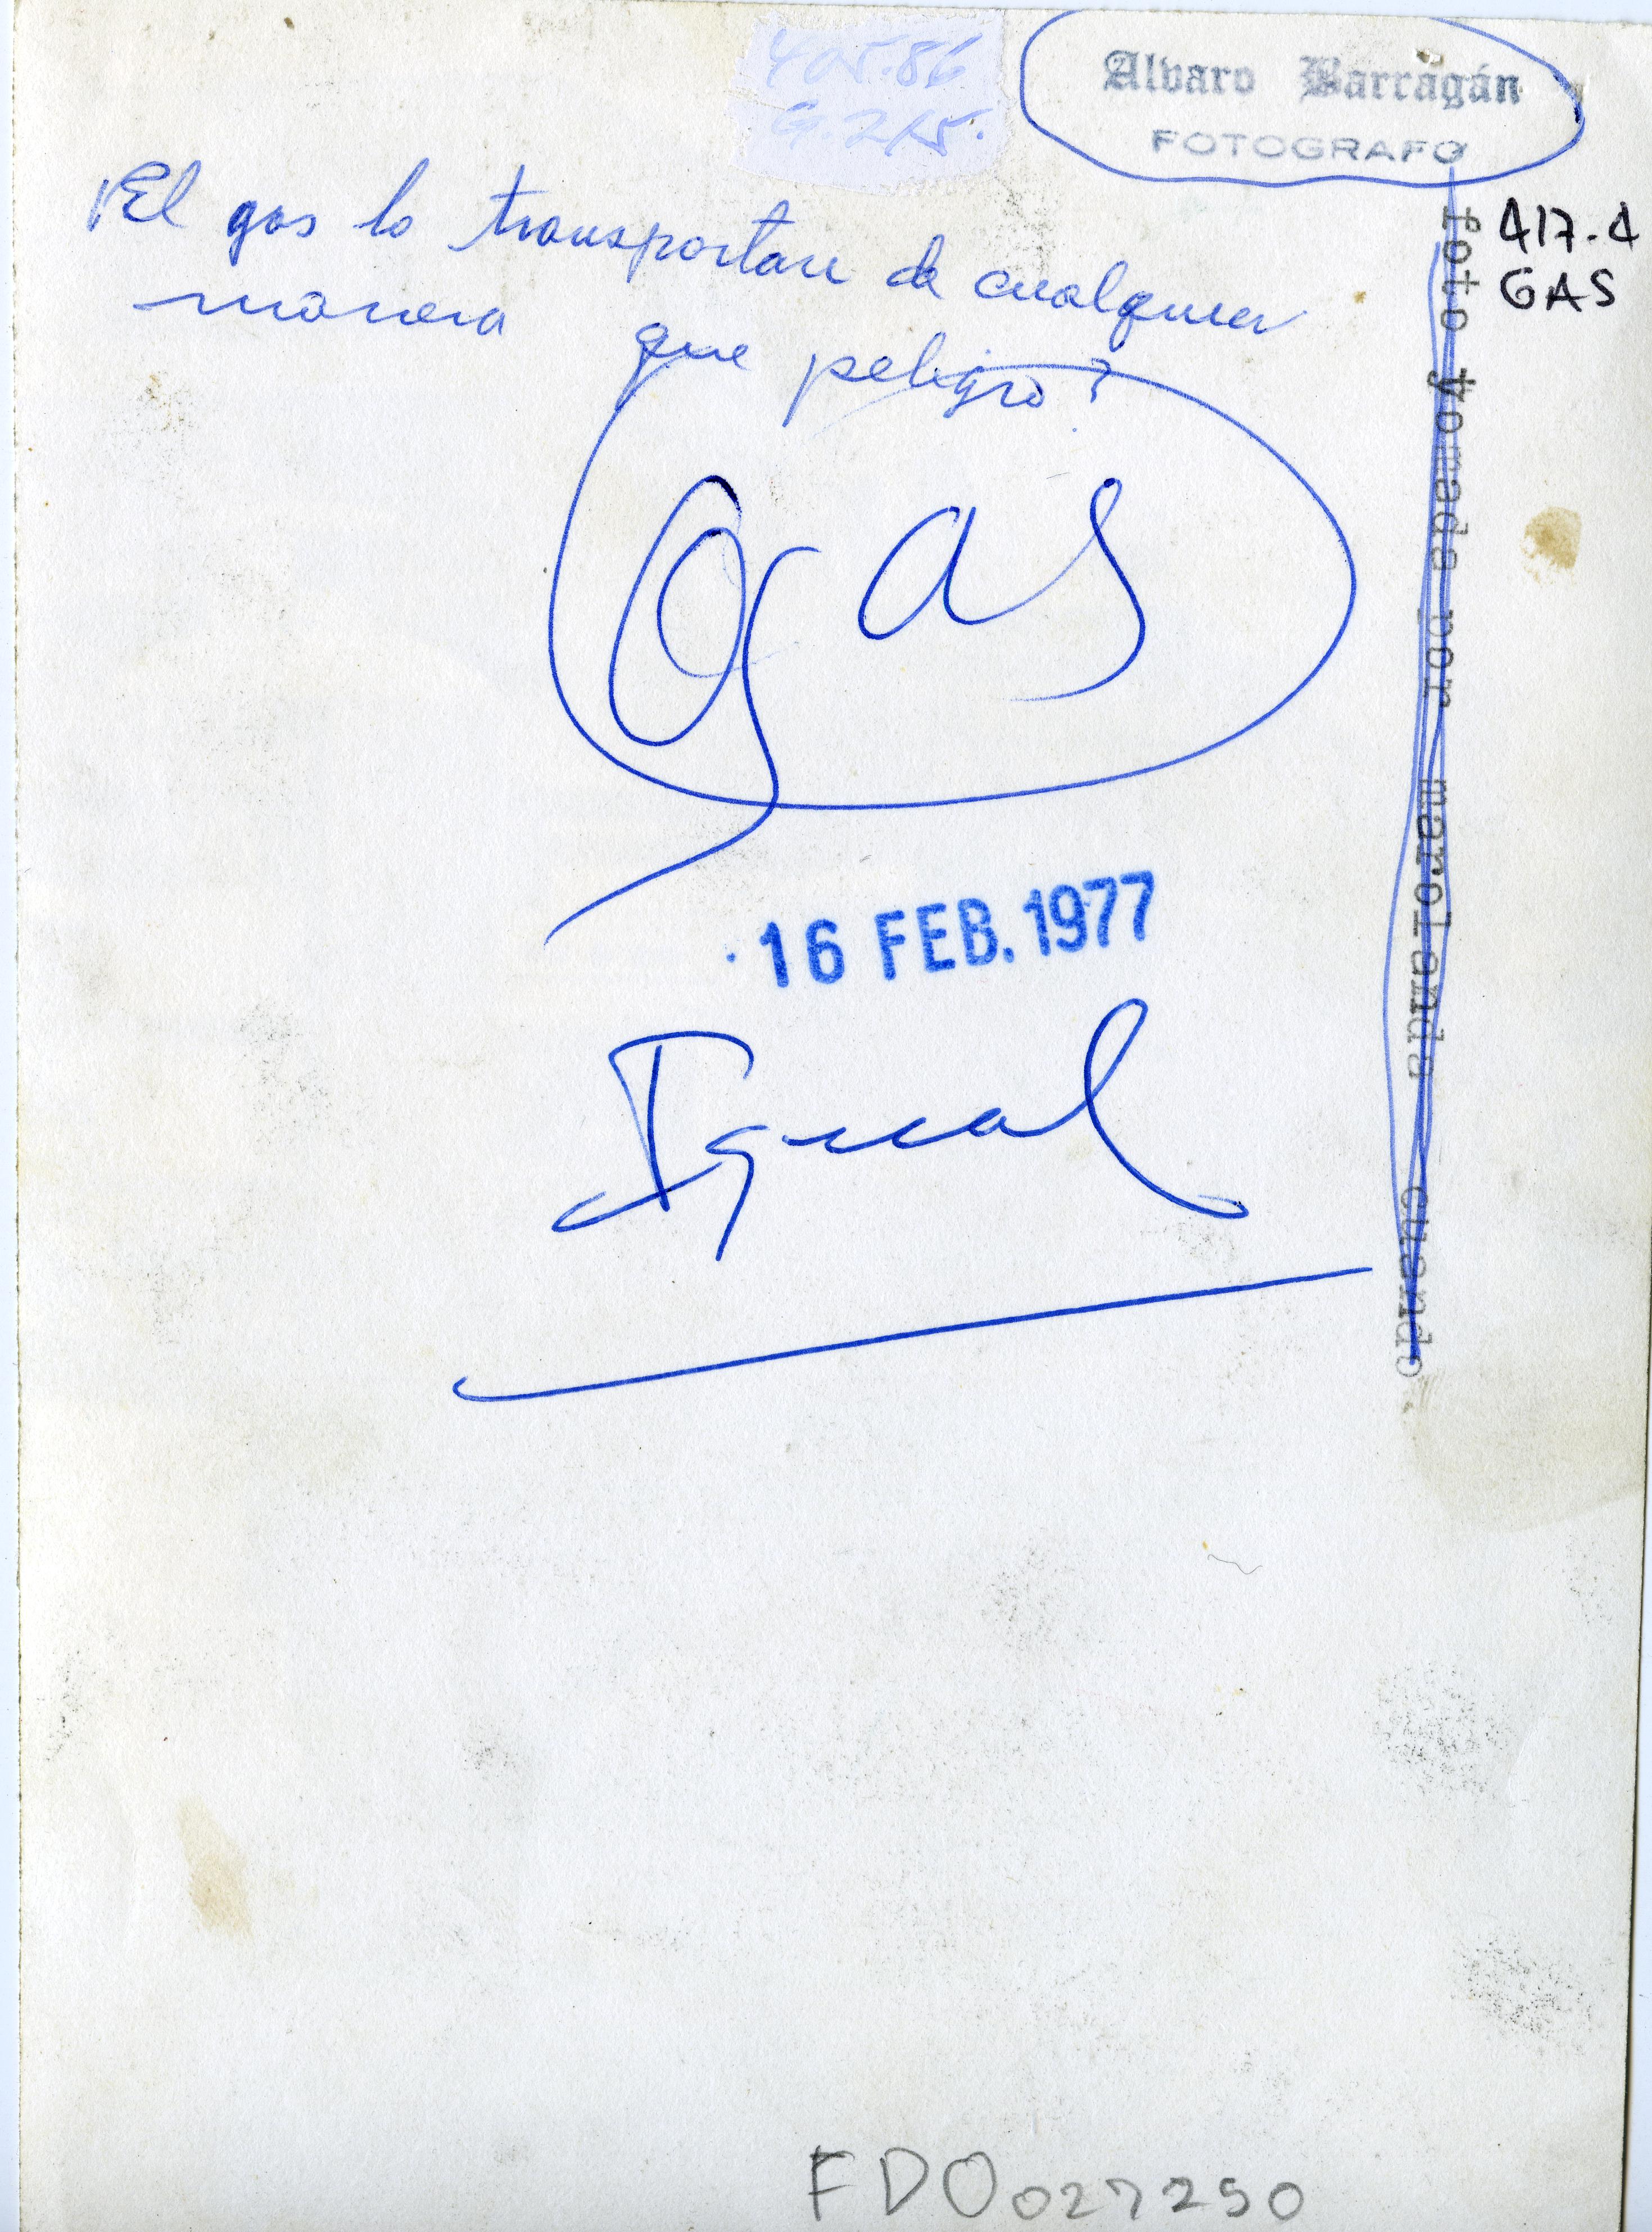 405.86
G.2/15.
Alvaro Barragán
FOTOGRAFO
417.4
GAS
El gas lo transportan de cualquier
manera que peligro?
foto tomada por marolanda cuando
gas
16 FEB. 1977
Igual
FDO027250